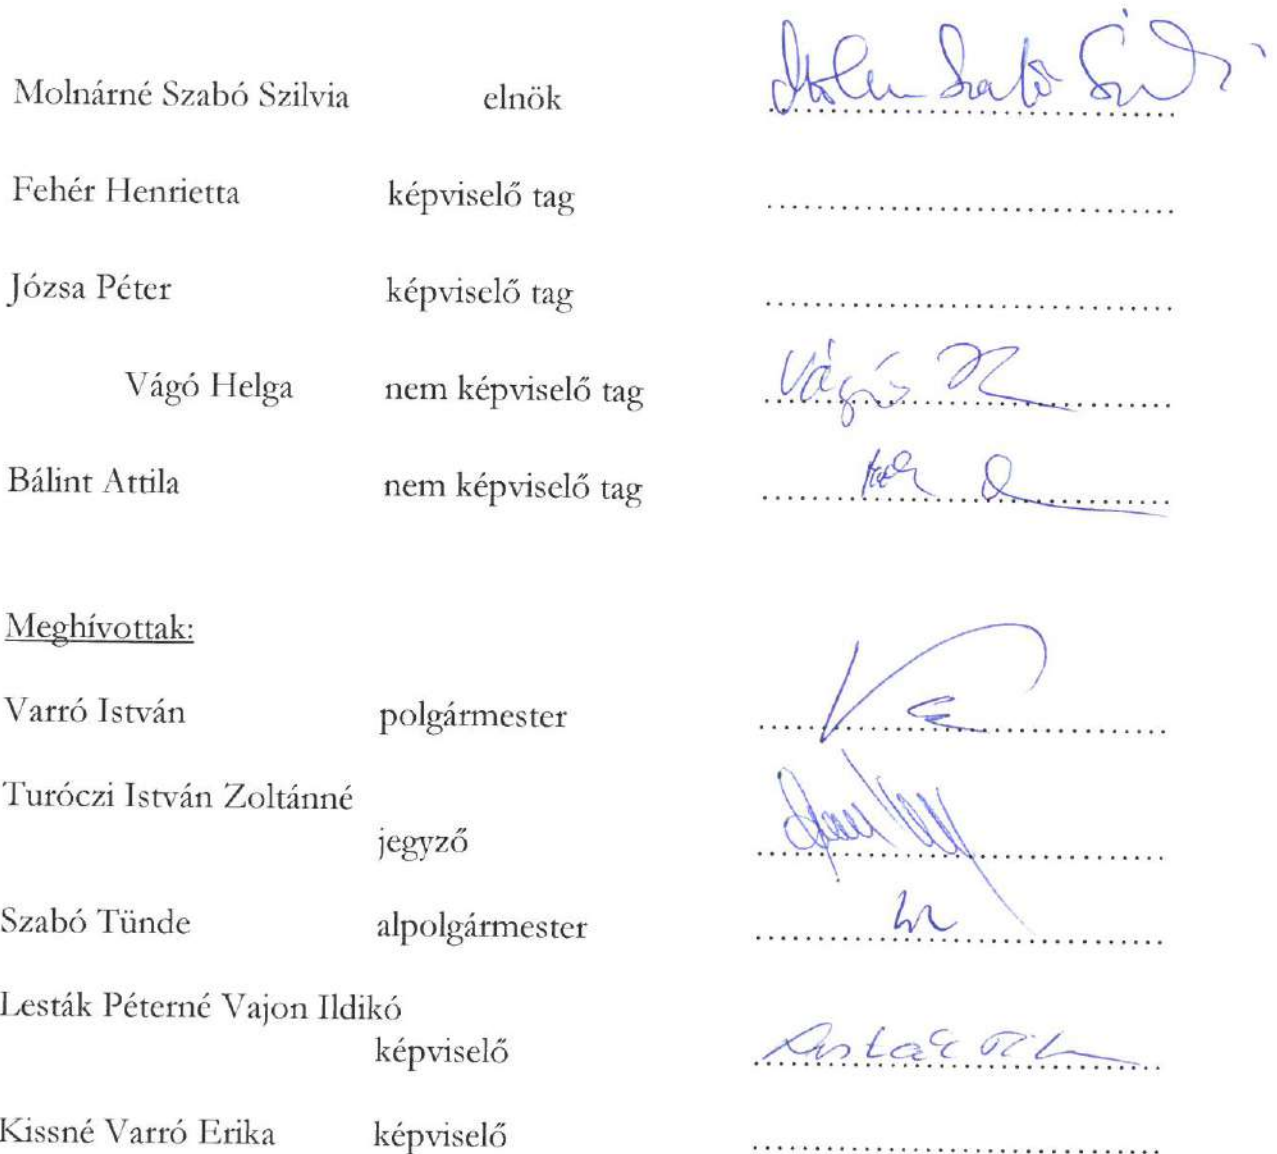 Molnárné Szabó Szilvia elnök Molnárné Szabó Szilvia
Fehér Henrietta képviselő tag ..............................
Józsa Péter képviselő tag ..............................
Vágó Helga nem képviselő tag Vágó H
Bálint Attila nem képviselő tag
Meghívottak:
Varró István polgármester
Turóczi István Zoltánné
jegyző
Szabó Tünde alpolgármester
Lesták Péterné Vajon Ildikó
képviselő Lesták
Kissné Varró Erika képviselő ..............................